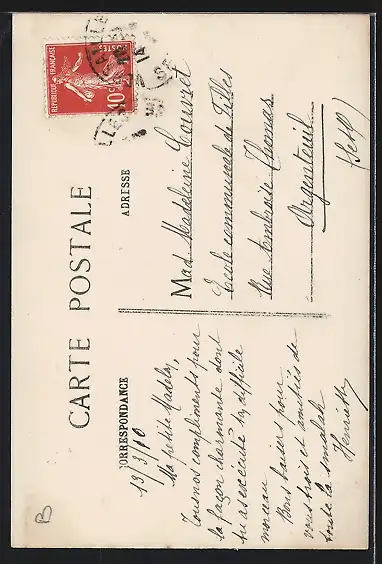 CARTE POSTALE
CORRESPONDANCE
ADRESSE
RÉPUBLIQUE FRANÇAISE
POSTES
10
13/3/10
Ma petite Madelon,
Tous nos compliments pour
la façon charmante dont
tu as exécuté ta difficile
morceau
Bons baisers pour
vous trois et amitiés de
toute la smalah
Henriette
Mad Madeleine Louvet
Ecole communale de Filles
Rue Ambroise Thomas
Argenteuil
(S et O)
B